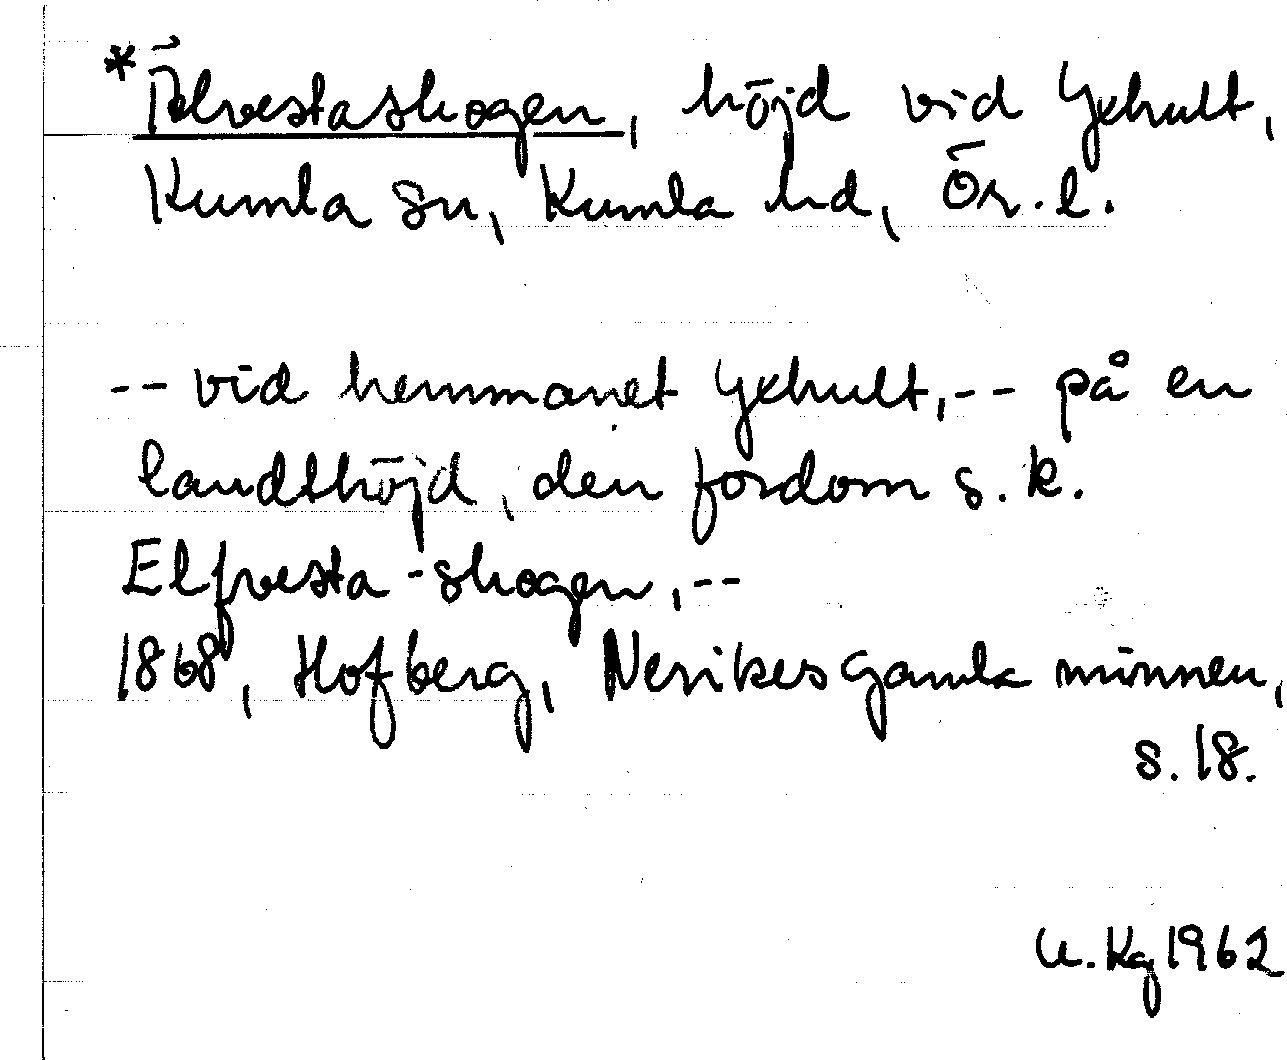 *Älvestaskogen, höjd vid Yxhult,
Kumla sn, Kumla hd, Ör. l.
-- vid hemmanet Yxhult, -- på en
landthöjd, den fordom s. k.
Elfvesta-skogen, --
1868, Hofberg, Nerikes gamla minnen,
s. 18.
U. Kg 1962